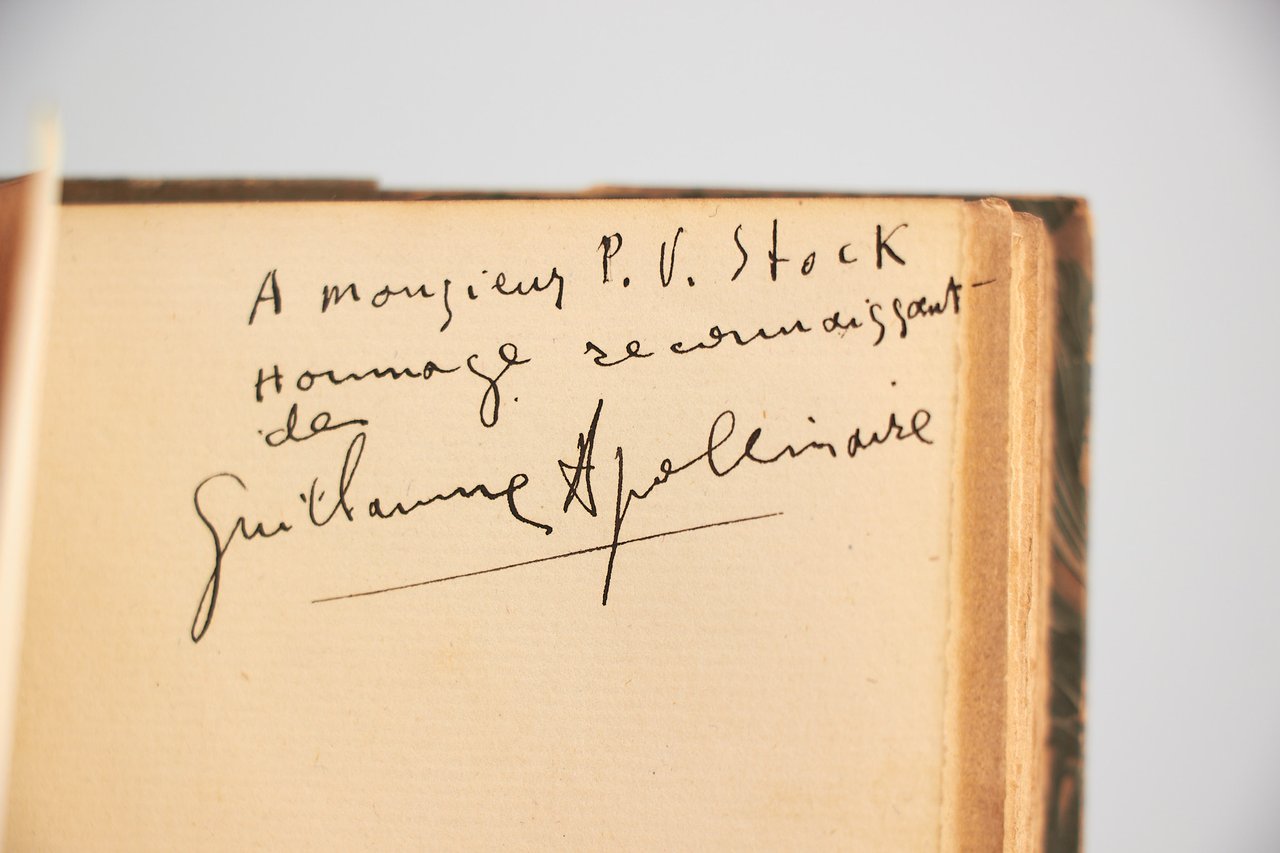 A monsieur P. V. Stock
Hommage reconnaissant
de
Guillaume Apollinaire